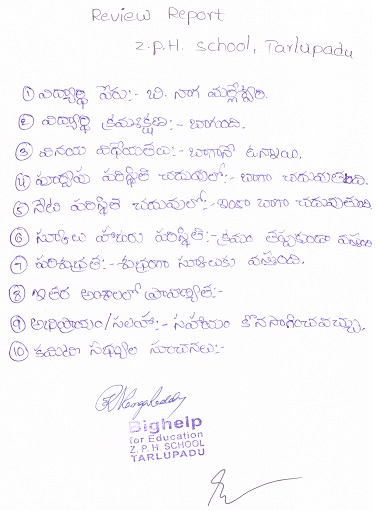 Review Report
Z.P.H. school, Tarlupadu
① విద్యార్థి పేరు:- బి. నాగ మల్లేశ్వరి.
② విద్యార్థి క్రమశిక్షణ:- బాగుంది.
③ వినయ విధేయతలు:- బాగానే ఉన్నాయి.
④ పూర్వపు పరిస్థితి చదువులో:- బాగా చదువుతుంది.
⑤ నేటి పరిస్థితి చదువులో:- ఇంకా బాగా చదువుతుంది
⑥ స్కూలు హాజరు పరిస్థితి:- క్రమం తప్పకుండా వస్తుంది
⑦ పరిశుభ్రత:- శుభ్రంగా స్కూలుకు వస్తుంది.
⑧ ఇతర అంశాలలో ప్రావీణ్యత:-
⑨ అభిప్రాయం/సలహా:- సహాయం కొనసాగించవచ్చు.
⑩ కమిటీ సభ్యుల సూచనలు:-
Bighelp
for Education
Z. P. H. SCHOOL
TARLUPADU